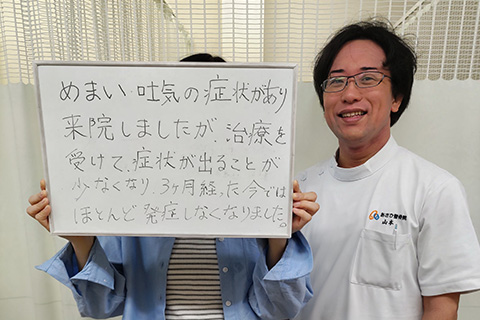 めまい・吐気の症状があり
来院しましたが、治療を
受けて、症状が出ることが
少なくなり、3ヶ月経った今では
ほとんど発症しなくなりました。
あさひ整骨院
山本